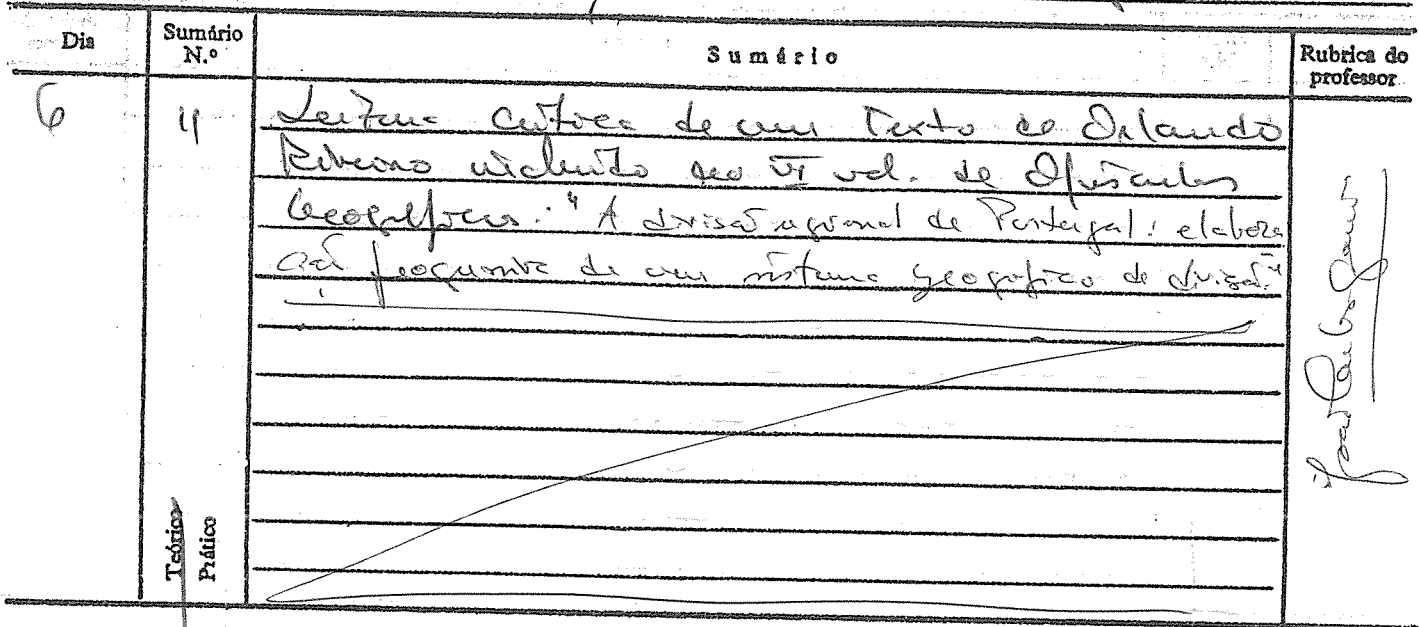 Dia
Sumário N.º
Sumário
Rubrica do professor
6
4
Leitura crítica de um texto de Orlando
Ribeiro incluído no VI vol. de Opúsculos
Geográficos: "A divisão regional de Portugal: elabora
ção de um sistema geográfico de divisão"
Teórico
Prático